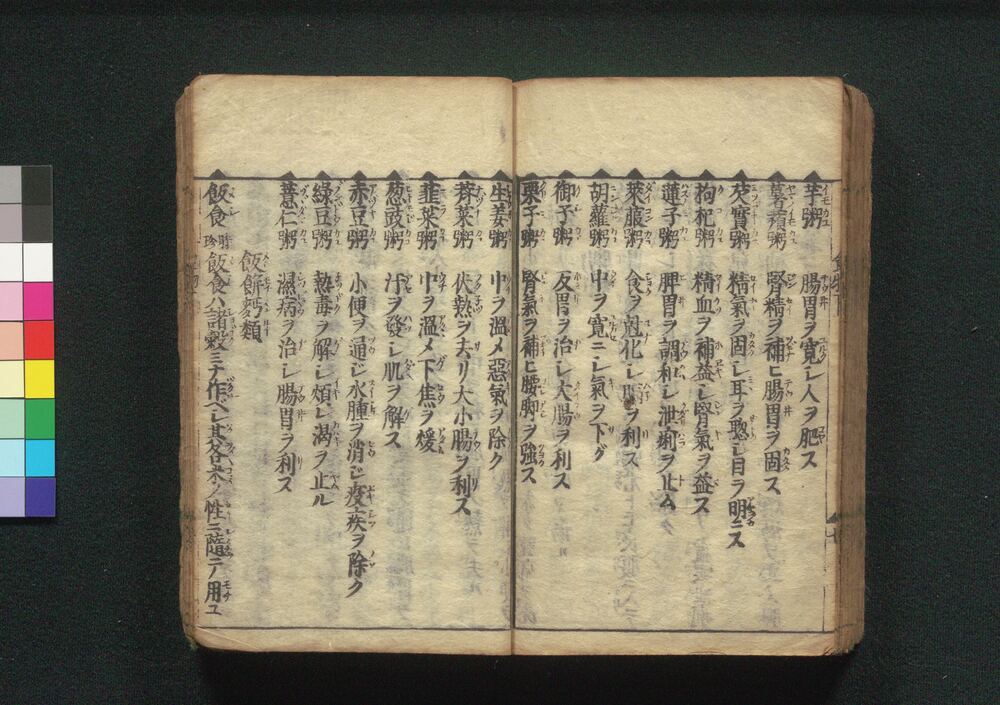 芋粥 腸胃ヲ寛シ人ヲ肥ス
薯蕷粥 腎精ヲ補ヒ腸胃ヲ固ス
芡實粥 精氣ヲ固シ耳ヲ聰シ目ヲ明ニス
枸杞粥 精血ヲ補益シ腎氣ヲ益ス
蓮子粥 脾胃ヲ調利シ泄痢ヲ止ム
萊菔粥 食ヲ尅化シ膈ヲ利ス
胡蘿粥 中ヲ寛ニシ氣ヲ下グ
御子粥 反胃ヲ治シ大腸ヲ利ス
栗子粥 腎氣ヲ補ヒ腰脚ヲ強ス
生姜粥 中ヲ温メ惡氣ヲ除ク
薺菜粥 伏熱ヲ去リ大小腸ヲ利ス
韮菜粥 中ヲ温メ下焦ヲ煖
葱豉粥 汗ヲ發シ肌ヲ解ス
赤豆粥 小便ヲ通ジ水腫ヲ消ジ疫疾ヲ除ク
緑豆粥 熱毒ヲ解シ煩渇ヲ止ル
薏仁粥 濕病ヲ治シ腸胃ヲ利ス
飯餅麪類
飯食 飯食ハ諸穀ミナ作ベシ其各米ノ性ニ随テ用ユ